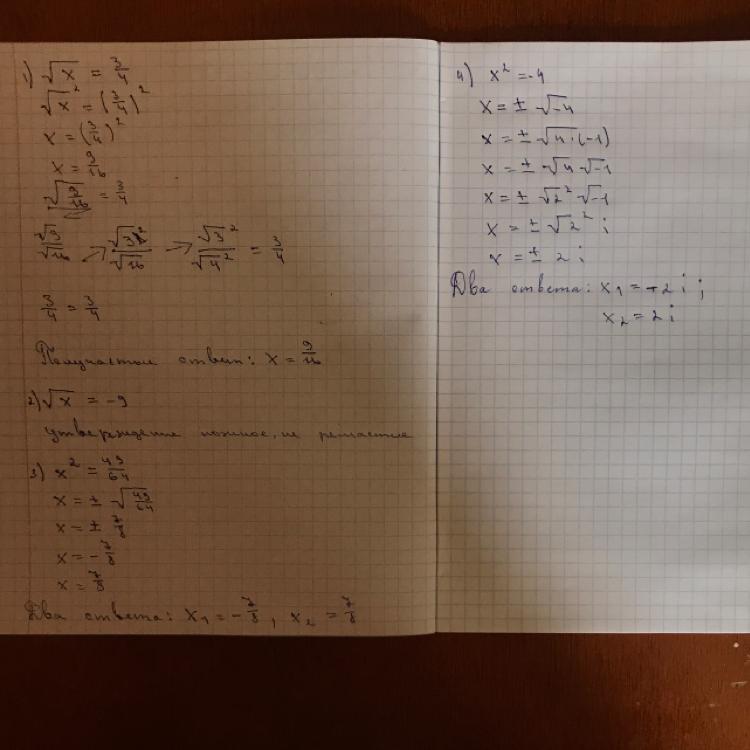 1) √x = 3/4
√x² = (3/4)²
x = (3/4)²
x = 9/16
√9/16 = 3/4
√9/√16 → √3²/√16 → √3²/√4² = 3/4
3/4 = 3/4
Получаем ответ: x = 9/16
2) √x = -9
утверждение ложное, не решается
3) x² = 49/64
x = ± √49/64
x = ± 7/8
x = - 7/8
x = 7/8
Два ответа: x₁ = - 7/8, x₂ = 7/8
4) x² = -4
x = ± √-4
x = ± √4·(-1)
x = ± √4 √-1
x = ± √2² √-1
x = ± √2² i
x = ± 2 i
Два ответа: x₁ = -2 i ;
x₂ = 2 i